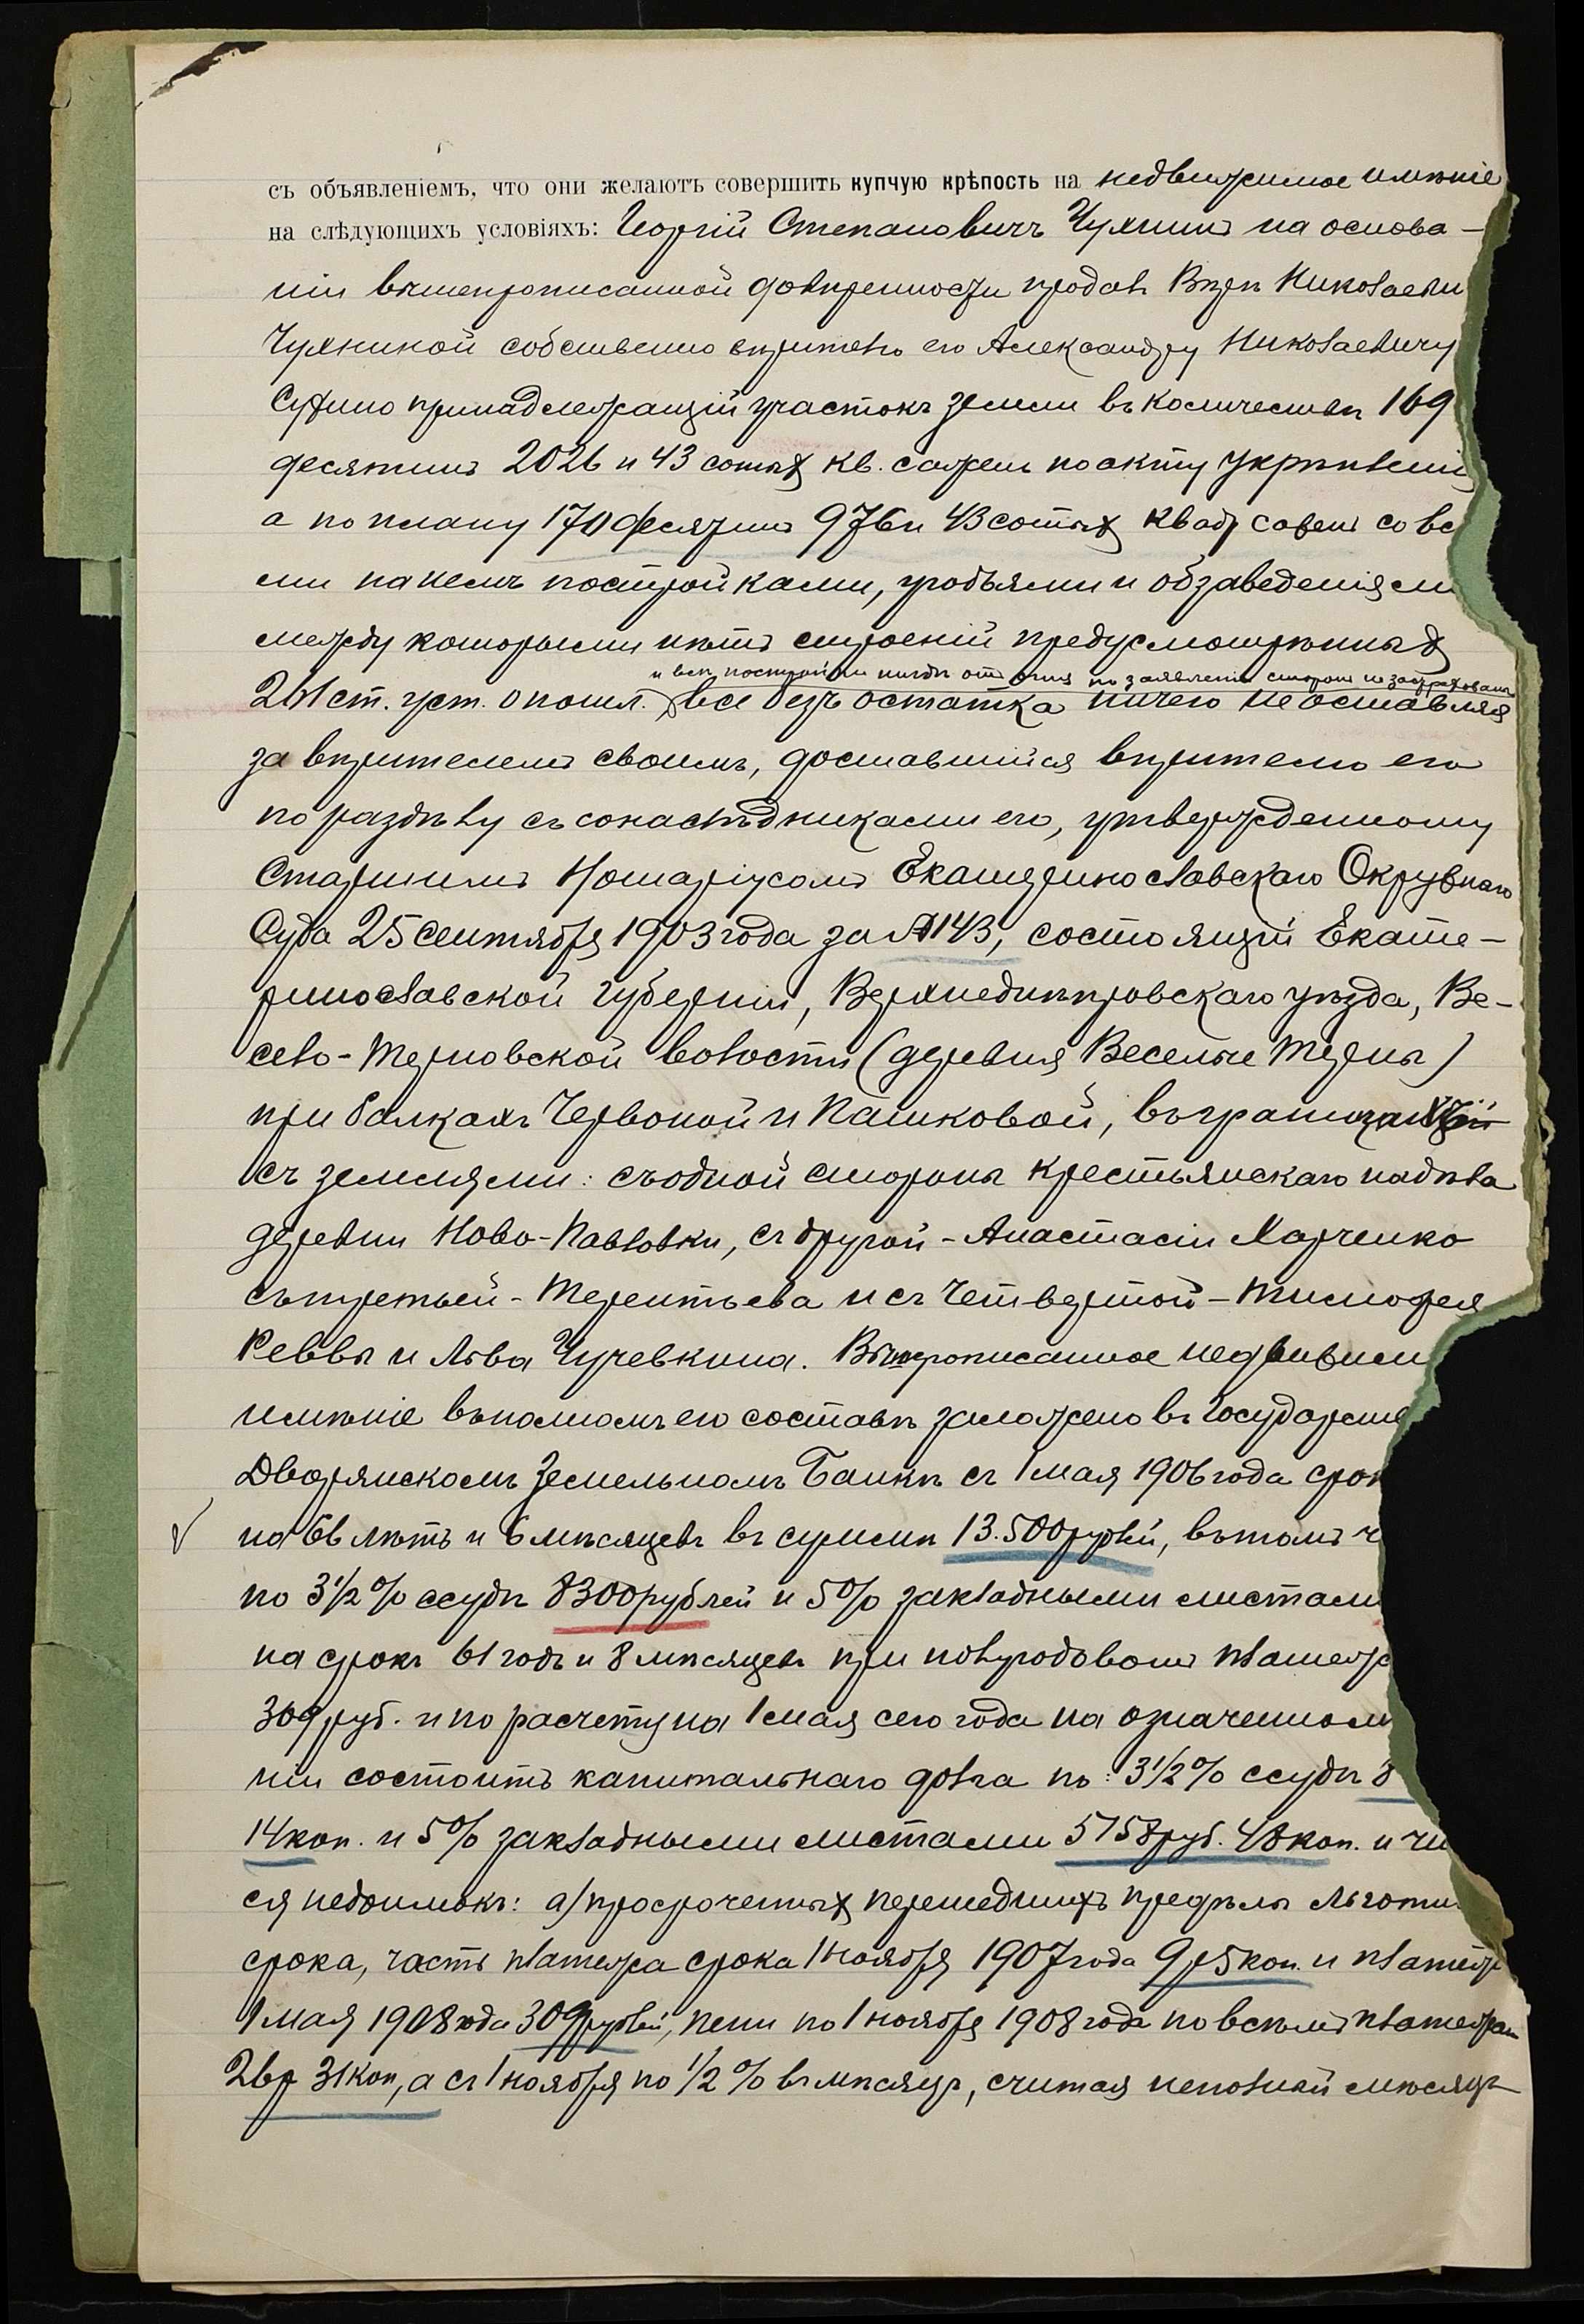 съ объявленіемъ, что они желаютъ совершить купчую крѣпость на недвижимое имѣніе
на слѣдующихъ условіяхъ: Георгій Степановичъ Чухнинъ на основа-
ніи вышепрописанной довѣренности продалъ Вѣрѣ Николаевнѣ
Чухниной собственно вѣрителю его Александру Николаевичу
принадлежащій участокъ земли въ количествѣ 169
десятинъ 2026 и 43 сотыхъ кв. сажени по акту укрѣпленія
а по плану 170 десятинъ 976 и 43 сотыхъ квад сажени со все
ми на немъ постройками, угодьями и обзаведеніями
между которыми нѣтъ строеній предусмотрѣнныхъ
и всѣ постройки нигдѣ отъ огня по заявленію сторонъ не застрахованы
261 ст. уст. о пошл. все безъ остатка ничего не оставляя
за вѣрителемъ своимъ, доставшійся вѣрителю его
по раздѣлу съ сонаслѣдниками его, утвержденному
Старшимъ Нотаріусомъ Екатеринославскаго Окружнаго
Суда 25 Сентября 1903 года за № 143, состоящій Екате-
ринославской губерніи, Верхнеднѣпровскаго уѣзда, Ве-
село-Терновской волости (деревня Веселые Терны)
при балкахъ Червоной и Пашковой, въ границахъ
съ землями: съ одной стороны крестьянскаго надѣла
деревни Ново-Павловки, съ другой - Анастасіи Харченко
съ третьей - Терентьева и съ четвертой - Тимофея
Реввы и Льва Чучевкина. Вышепрописанное недвижим
имѣніе въ полномъ его составѣ заложено въ Государств
Дворянскомъ Земельномъ Банкѣ съ 1 мая 1906 года срок
на 66 лѣтъ и 6 мѣсяцевъ въ суммѣ 13.500 рублей, въ томъ ч
по 3½% ссудѣ 8300 рублей и 5% закладными листами
на срокъ 61 годъ и 8 мѣсяцевъ при полугодовомъ платеж
309 руб. и по расчету на 1 мая сего года на означенном
ніи состоитъ капитальнаго долга по: 3½% ссудѣ 8
14 коп. и 5% закладными листами 5158 руб. 48 коп. и чи
ся недоимокъ: а) просроченныхъ перешедшихъ предѣлы льготн
срока, часть платежа срока 1 ноября 1907 года 9 р 5 коп. и платеж
1 мая 1908 года 309 рублей, пени по 1 ноября 1908 года по всѣмъ платежам
26 р 31 коп, а съ 1 ноября по ½% въ мѣсяцъ, считая неполный мѣсяцъ